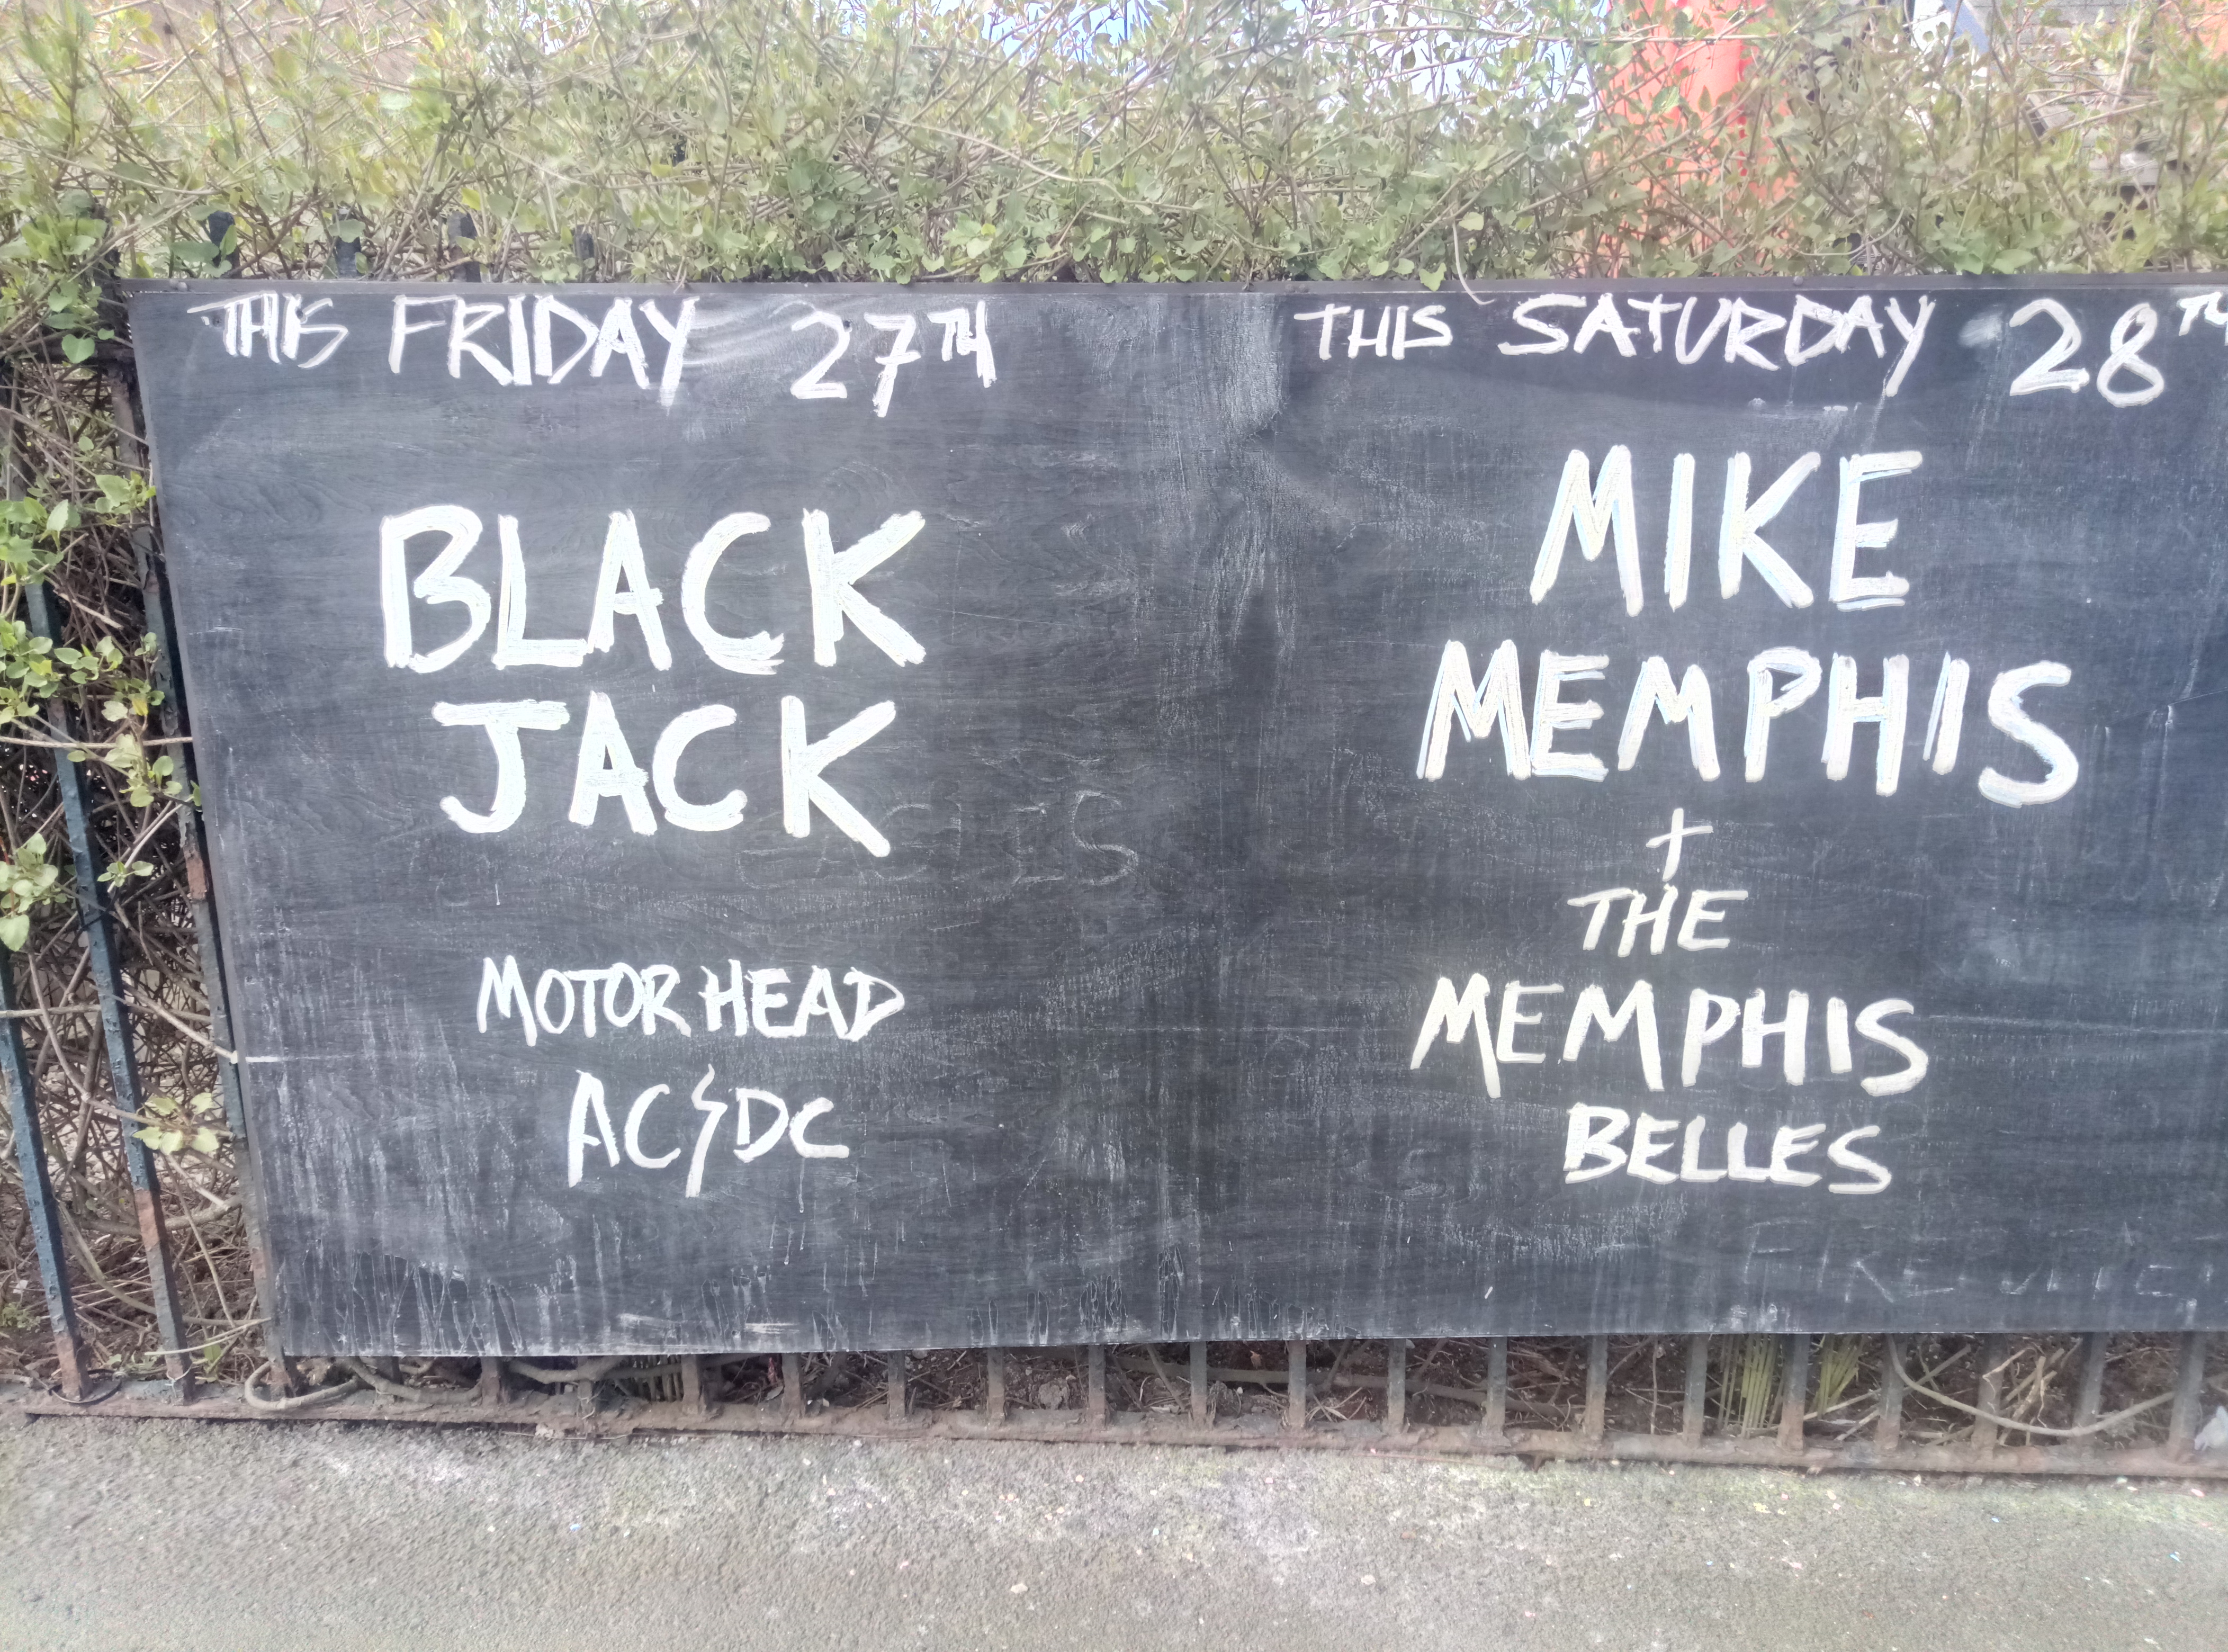 THIS FRIDAY 27TH
BLACK
JACK
MOTORHEAD
AC⚡DC
THIS SATURDAY 28TH
MIKE
MEMPHIS
+
THE
MEMPHIS
BELLES